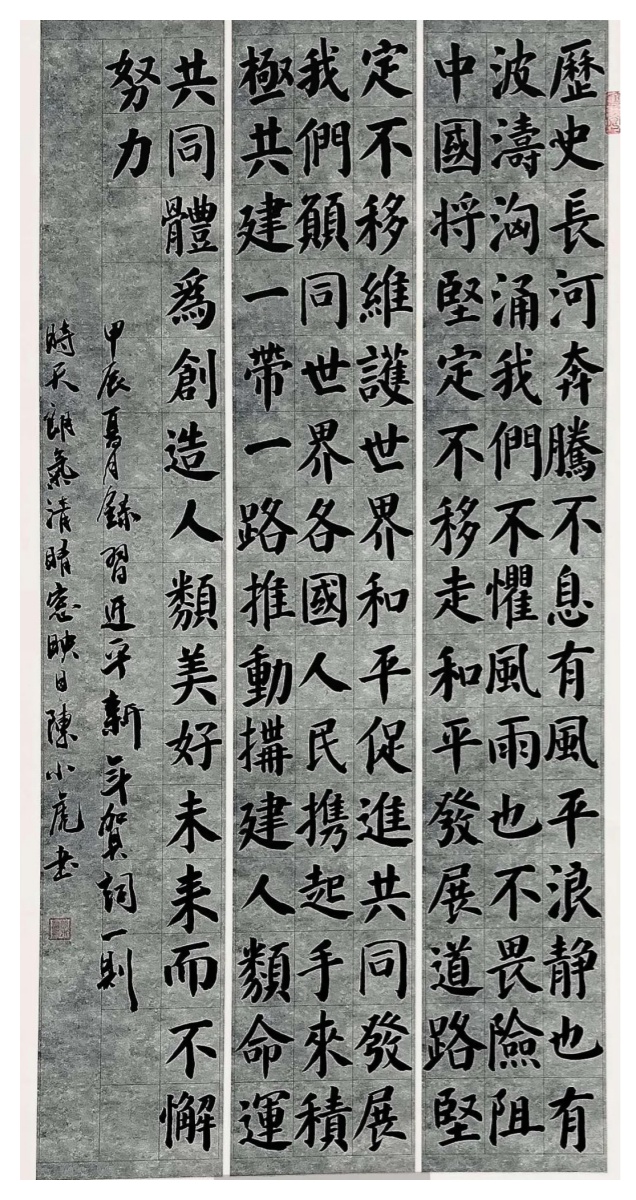 歷史長河奔騰不息有風平浪静也有
波濤洶涌我們不懼風雨也不畏險阻
中國将堅定不移走和平發展道路堅
定不移維護世界和平促進共同發展
我們願同世界各國人民携起手來積
極共建一帶一路推動搆建人類命運
共同體為創造人類美好未来而不懈
努力
甲辰夏月録習近平新年賀詞一則
時天朗氣清晴窓映日陳小虎书